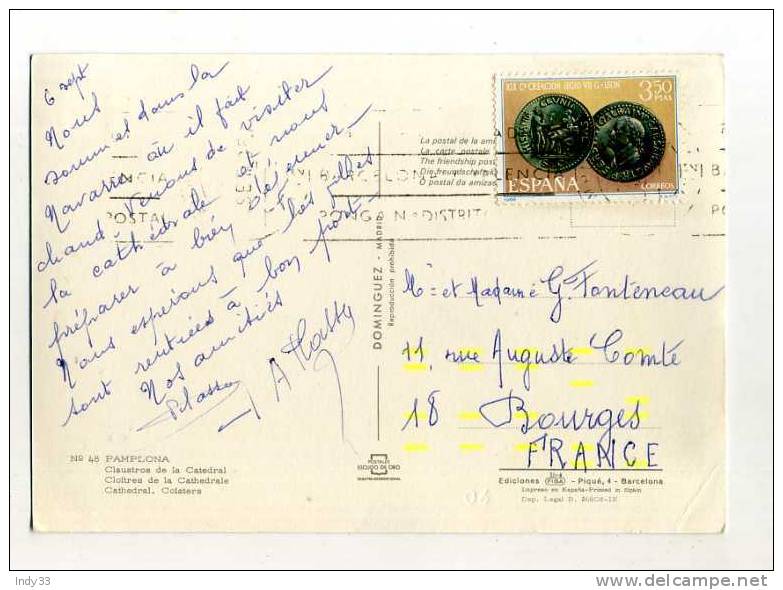 6 sept
Nous
sommes dans la
Navarre où il fait
chaud. Venons de visiter
la cathédrale et nous
préparer à bien déjeuner
Nous espérons que les filles
sont rentrées à bon port.
Nos amitiés
XIX C. CREACION LEGIO VII G-LEON
3,50
PTAS
ESPAÑA
CORREOS
La postal de la
La carte postale
The friendship post
Die freundschaft
O postal da
VALENCIA
BARCELONA
POSTAL
PONGA Nº DISTRITO
DOMINGUEZ - MADRID
Reproducción prohibida
Mr et Madame G. Fonteneau
11, rue Auguste Comte
18 Bourges
FRANCE
Nº 48 PAMPLONA
Claustros de la Catedral
Cloîtres de la Cathedrale
Cathedral. Coisters
POSTALES
ESCUDO DE ORO
Ediciones FISA - Piqué, 4 - Barcelona
Impreso en España-Printed in Spain
Dep. Legal B.
04
Indy33
delcampe.net